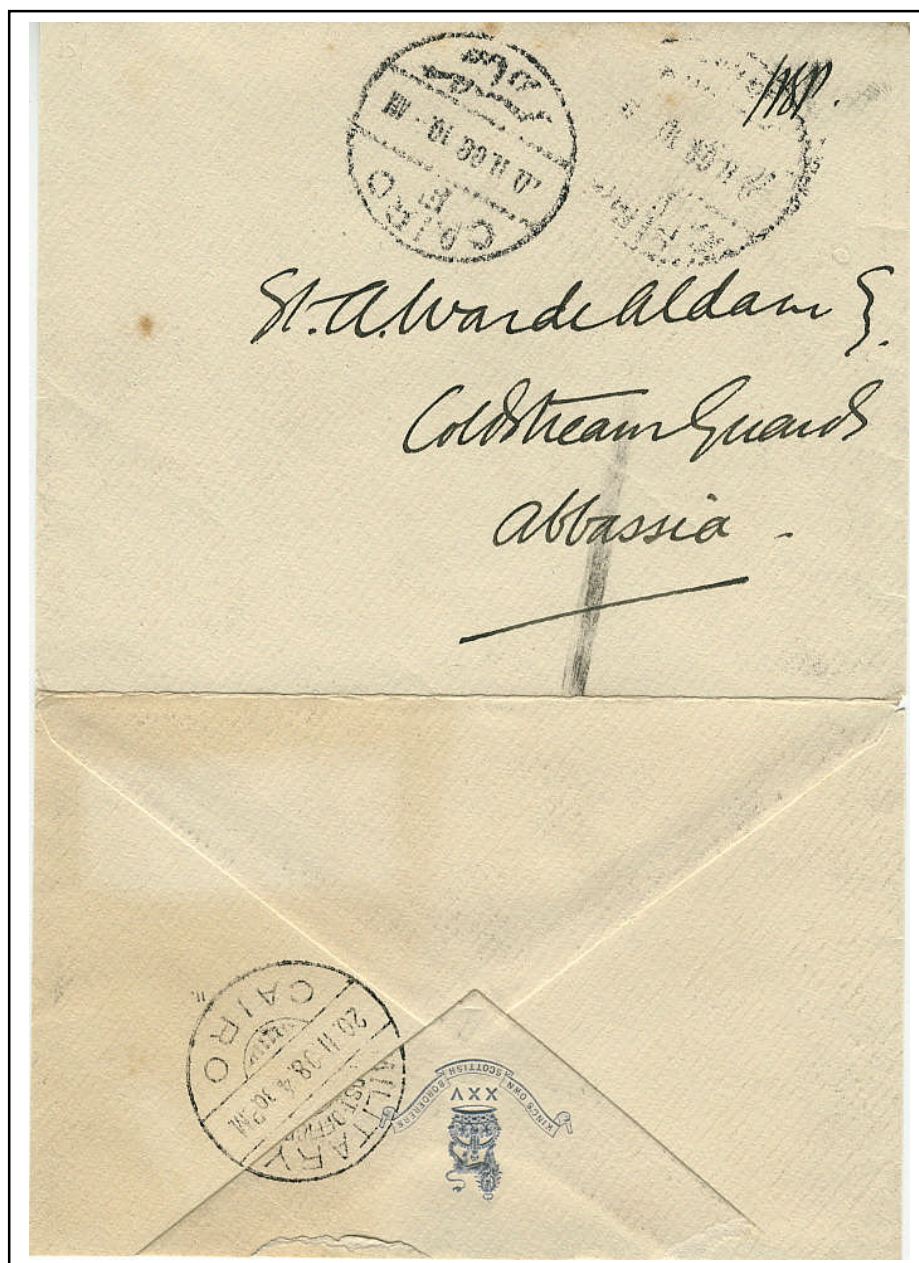 CAIRO
F
II.08 10
II.08
St. A. Warde Aldam E
Coldstream Guards
Abbassia -
CAIRO
20. II. 08. 4 30 P.M
MILITARY
POST. OFFICE
KING'S OWN SCOTTISH BORDERERS
XXV